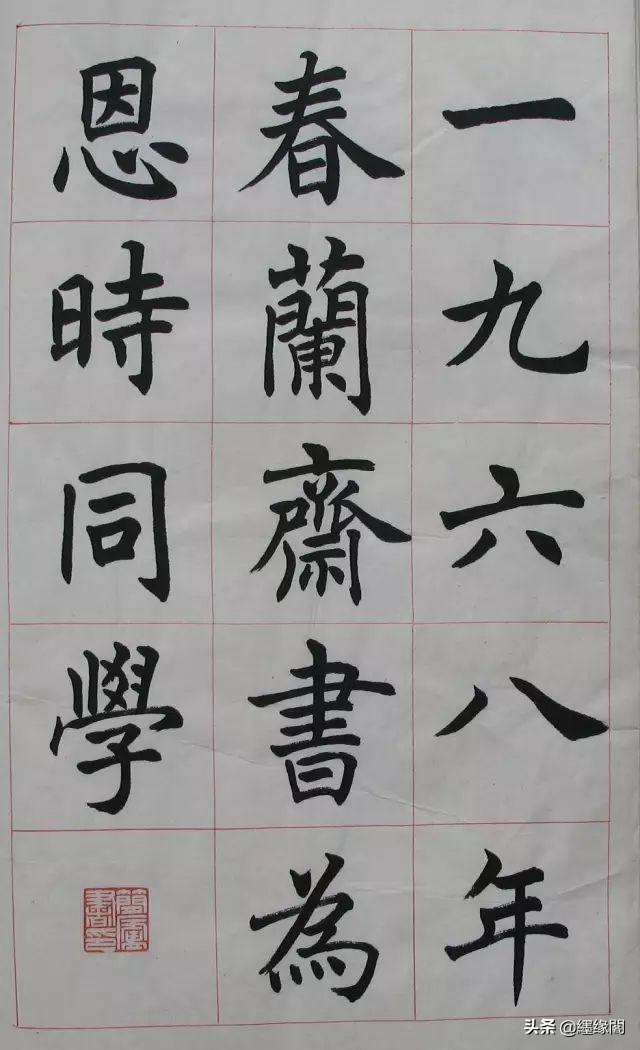 一九六八年
春蘭齋書為
恩時同學
头条 @纆缘阁